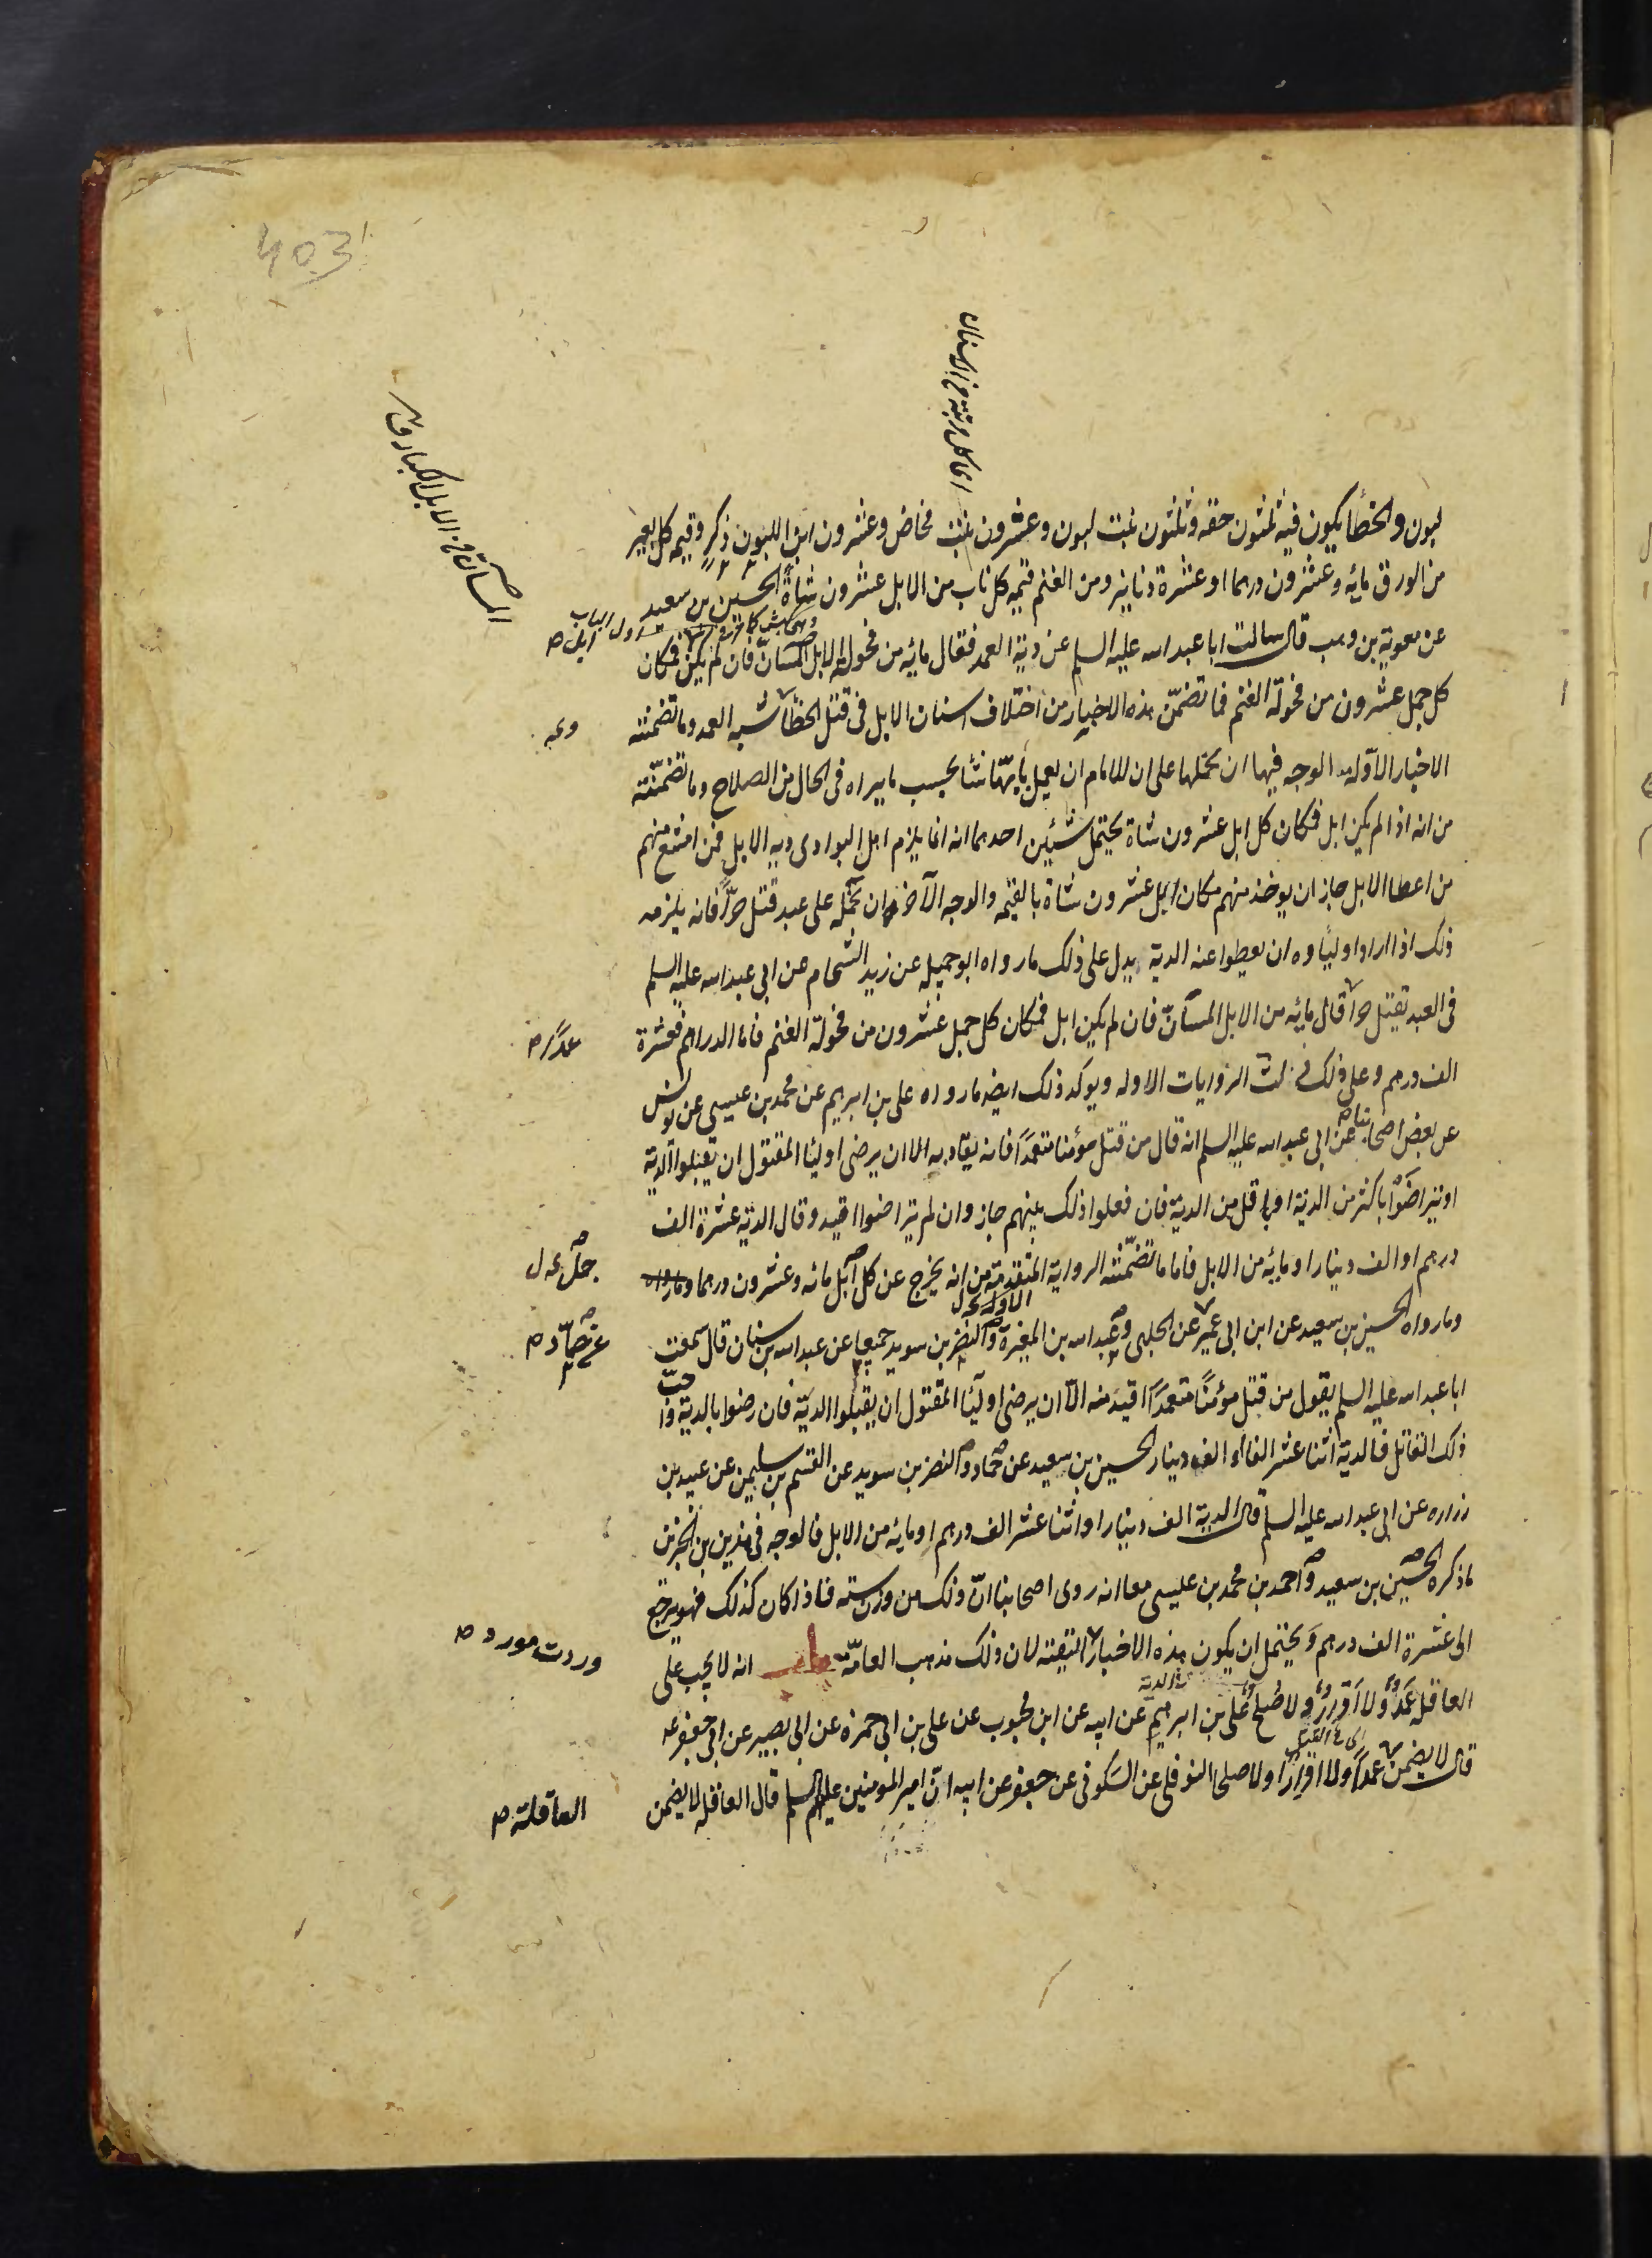 403
اى كل مرتبة من الاسنان
المسانّ من الابل الكبار ق
لبون والخطأ يكون فيه ثلثون حقه وثلثون بنت لبون وعشرون بنت مخاض وعشرون ابن اللبون ذكر وقيمه كل بعير
من الورق مايه وعشرون درهما او عشرة دنانير ومن الغنم قيمه كل ناب من الابل عشرون شاة الحسين بن سعيد
عن معوية بن وهب قال سالت ابا عبد الله عليه السلم عن دية العمد فقال مايه من فحوله الابل المسانّ فان لم يكن فمكان
كل جمل عشرون من فحولة الغنم فما تضمّن هذه الاخبار من اختلاف اسنان الابل فى قتل الخطأ شبه العمد وما تضمنته
الاخبار الاوّله الوجه فيها ان نحملها على ان للامام ان يعمل بايّها شأ بحسب ما يراه فى الحال من الصلاح وما تضمّنته
من انه اذا لم يكن ابل فمكان كل ابل عشرون شاة يحتمل شيئين احدهما انه انما يلزم اهل البوادى ديه الابل فمن امتنع منهم
من اعطا الابل جاز ان يوخذ منهم مكان ابل عشرون شاة بالقيمه والوجه الآخر ان نحمله على عبد قتل حرّاً فانه يلزمه
ذلك اذا اراد اوليأوه ان يعطوا عنه الدية يدل على ذلك ما رواه ابو جميله عن زيد الشحام عن ابى عبد الله عليه السلم
فى العبد يقتل حراً قال مايه من الابل المسانّ فان لم يكن ابل فمكان كل جمل عشرون من فحولة الغنم فاما الدراهم فعشرة
عمداً ص
الف درهم وعلى ذلك دلت الروايات الاوله ويوكد ذلك ايضه ما رواه على بن ابرهيم عن محمد بن عيسى عن يونس
عن بعض اصحابنا عن ابى عبد الله عليه السلم انه قال من قتل مؤمنا متعمداً فانه يقاد به الا ان يرضى اوليأ المقتول ان يقبلوا الدية
او يتراضوا باكثر من الدية او باقل من الدية فان فعلوا ذلك بينهم جاز وان لم يتراضوا اقيد وقال الديه عشرة الف
درهم او الف دينار او مايه من الابل فاما ما تضمّنته الرواية المتقدمة من انه يخرج عن كل ابل مائه وعشرون درهما وما رواه
وما رواه الحسين بن سعيد عن ابن ابى عمير عن الحلبى وعبد الله بن المغيرة والنضر بن سويد جميعا عن عبد الله بن سنان قال سمعت
عن حماد ص
ابا عبد الله عليه السلم يقول من قتل مؤمناً متعمداً اقيد منه الا ان يرضى اوليأ المقتول ان يقبلوا الدية فان رضوا بالدية واحبّ
ذلك القاتل فالدية اثنا عشر الفا او الف دينار الحسين بن سعيد عن حماد والنضر بن سويد عن القسم بن سليمن عن عبيد بن
زراره عن ابى عبد الله عليه السلم قال الدية الف دينار او اثنا عشر الف درهم او مايه من الابل فالوجه فى هذين الخبرين
ما ذكره الحسين بن سعيد واحمد بن محمد بن عيسى معا انه روى اصحابنا انّ ذلك من وزن سته فاذا كان كذلك فهو يرجع
الى عشرة الف درهم ويحتمل ان يكون هذه الاخبار التقية لان ذلك مذهب العامّة باب انه لا يجب على
وردت مورد ص
العاقله عمد ولا اقرار ولا صلح على بن ابرهيم عن ابيه عن ابن محبوب عن على بن ابى حمزه عن ابى بصير عن ابى جعفر عه
قال لا يضمن عمداً ولا اقراراً ولا صلحا النوفلى عن السكونى عن جعفر عن ابيه انّ امير المومنين عليهم السلم قال العاقله لا يضمن
العاقلة ص